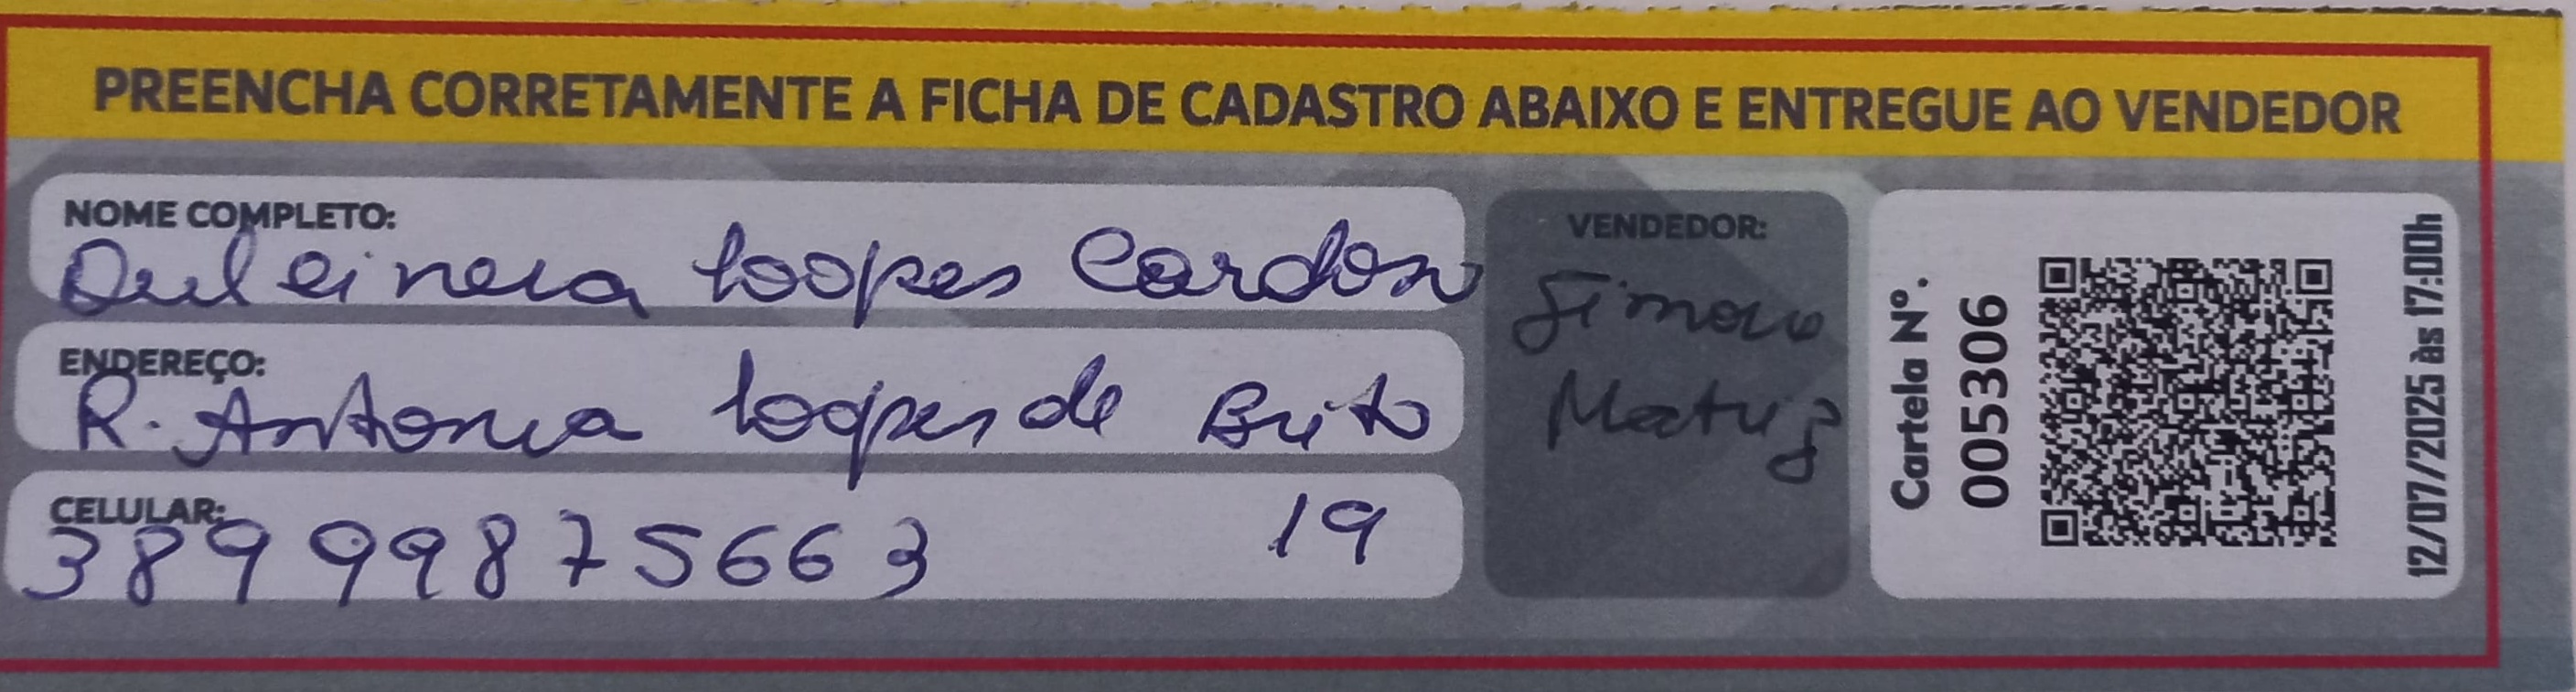 PREENCHA CORRETAMENTE A FICHA DE CADASTRO ABAIXO E ENTREGUE AO VENDEDOR
NOME COMPLETO:
Dulcineia Loopes Cardoso
ENDEREÇO:
R. Antonia Lopes de Brito
CELULAR:
38999875663 19
VENDEDOR:
Simone
Matuz
Cartela Nº.
005306
12/07/2025 às 17:00h